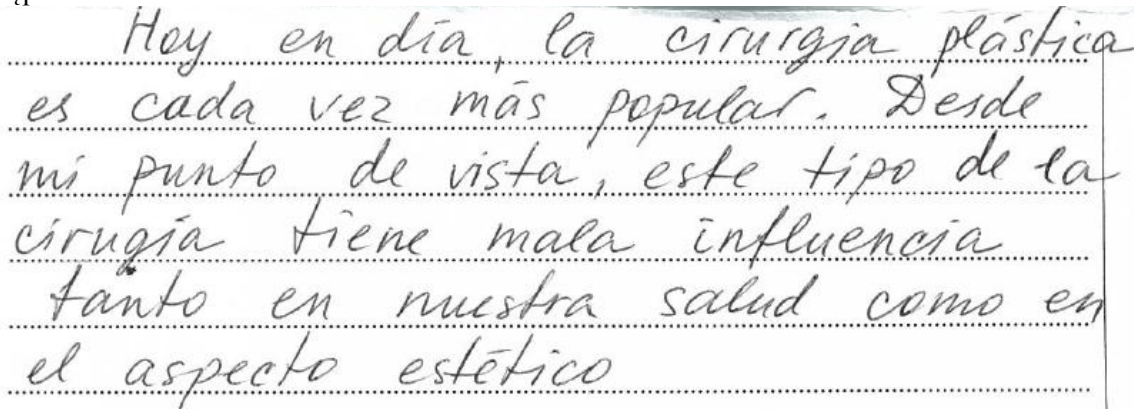 Hoy en día, la cirurgía plástica
es cada vez más popular. Desde
mi punto de vista, este tipo de la
cirugía tiene mala influencia
tanto en nuestra salud como en
el aspecto estético